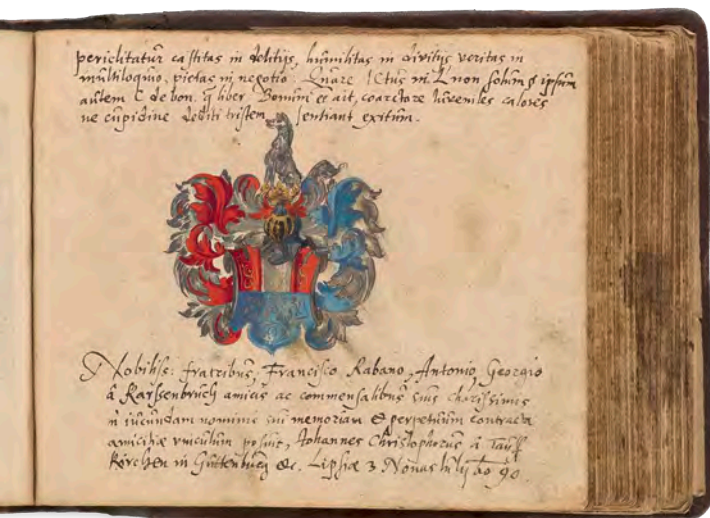 periclitatur castitas in delitijs, humilitas in divitijs veritas in
multiloquio, pietas in negotio. Quare ICtus in L non solum § ipsum
autem C de bon. q liber Bonum eē ait, coarctare iuveniles calores
ne cupidine dediti tristem sentiant exitum.
Nobiliss: fratribus, Francisco Rabano, Antonio, Georgio
à Karssenbruch amicis ac commensalibus suis charissimis
in iucundam nominis sui memoriam & perpetuum contractæ
amicitiæ vinculum posuit, Johannes Christophorus à Tauff
kirchen in Guttenburg &c. Lipsiæ 3 Nonas Ao 90.